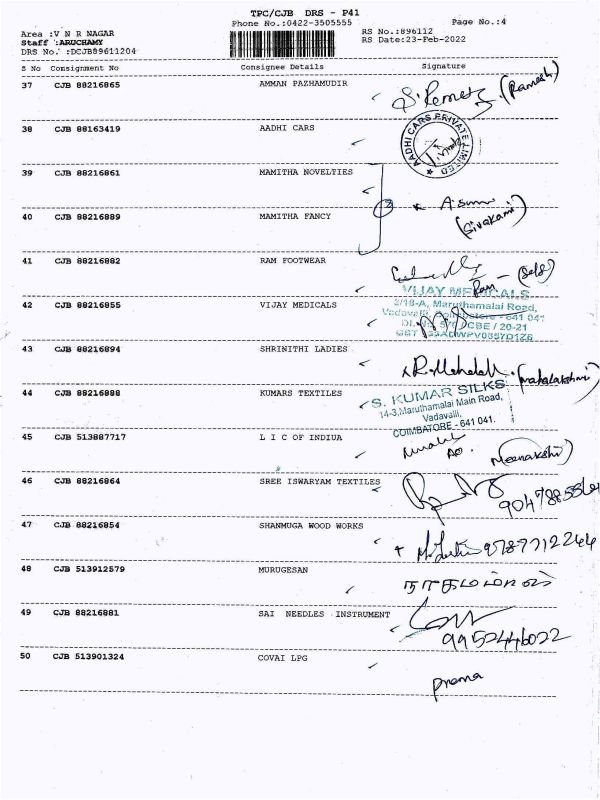 TPC/CJB DRS - P41
Phone No.:0422-3505555
Page No.:4
Area :V N R NAGAR
RS No.:896112
Staff :ARUCHAMY
RS Date:23-Feb-2022
DRS No. :DCJB89611204
S No Consignment No Consignee Details Signature
37 CJB 88216865 AMMAN PAZHAMUDIR
(Ramesh)
38 CJB 88163419 AADHI CARS
AADHI CARS PRIVATE LIMITED
39 CJB 88216861 MAMITHA NOVELTIES
2
(Sivakami)
40 CJB 88216889 MAMITHA FANCY
41 CJB 88216882 RAM FOOTWEAR
Ram - (Self)
42 CJB 88216855 VIJAY MEDICALS
VIJAY MEDICALS
2/18-A, Maruthamalai Road,
Vadavalli, Coimbatore - 641 041
43 CJB 88216894 SHRINITHI LADIES
(mahalakshmi)
44 CJB 88216888 KUMARS TEXTILES
S. KUMAR SILKS
14-3, Maruthamalai Main Road,
Vadavalli,
COIMBATORE - 641 041.
45 CJB 513887717 L I C OF INDIUA
(Meenakshi)
46 CJB 88216864 SREE ISWARYAM TEXTILES
47 CJB 88216854 SHANMUGA WOOD WORKS
9787712244
48 CJB 513912579 MURUGESAN
49 CJB 88216881 SAI NEEDLES INSTRUMENT
9952446022
50 CJB 513901324 COVAI LPG
prema